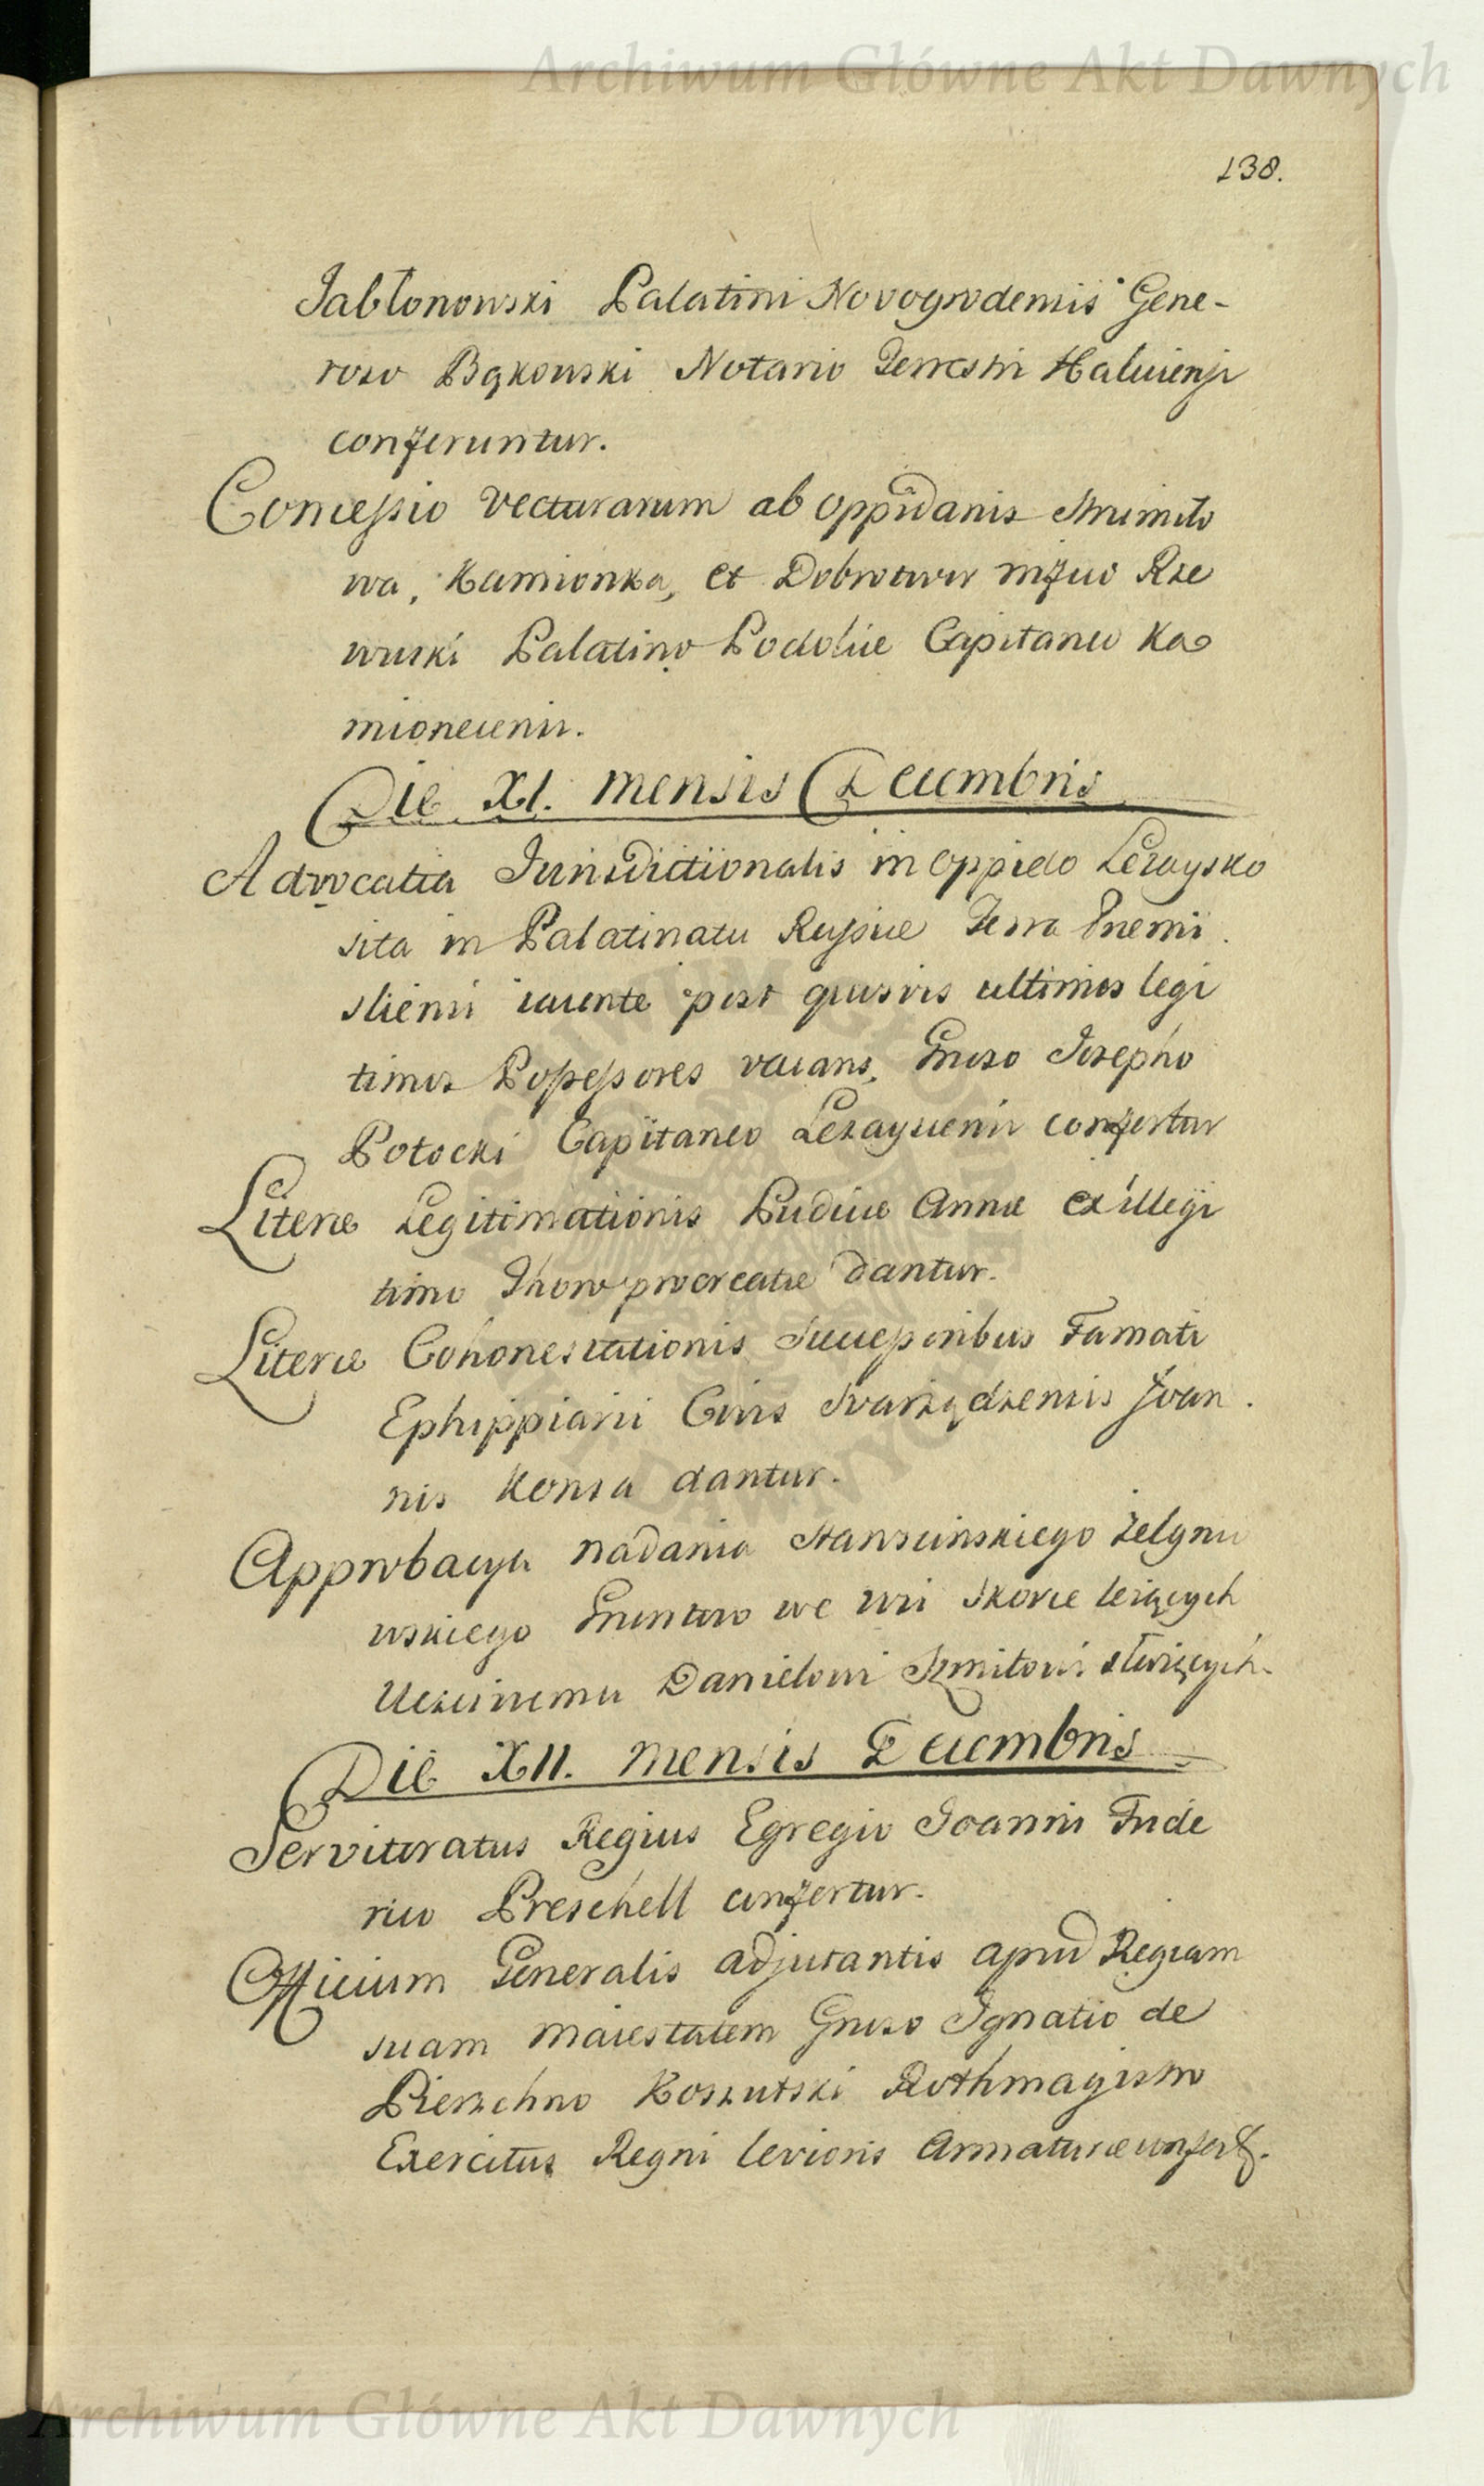 Archiwum Główne Akt Dawnych
138.
Jabłonowski Palatini Novogrodensis Gene-
roso Bąkowski Notario Terrestri Haliciensi
conferuntur.
Concessio vecturarum ab oppidanis Strumiło
wa, Kamionka, et Dobrotwor mfico Rze
wuski Palatino Podoliæ Capitaneo Ka
mionecensi.
Die XI. Mensis Decembris
Advocatia Jurisdictionalis in oppido Lezaysko
sita in Palatinatu Russiæ Terra Premi
sliensi iacente post quosvis ultimos legi
timos Possessores vacans, Gnroso Josepho
Potocki Capitaneo Lezayscensi confertur
Literæ Legitimationis Pudicæ Annæ ex illegi
timo Thoro procreatæ dantur.
Literæ Cohonestationis Successoribus Famati
Ephippiarii Civis Svarzędzensis Joan
nis Konsa dantur.
Approbacya nadania
wskiego Gruntow we wsi Skorce leżących
Uczciwemu Danielowi Szmitowi służących.
Die XII. Mensis Decembris
Servitoratus Regius Egregio Joanni Fride
rico Preschell confertur.
Officium Generalis adjutantis apud Regiam
suam Maiestatem Gnroso Ignatio de
Pierzchno Koszutski Rothmagistro
Exercitus Regni levioris Armaturæ confert.
Archiwum Główne Akt Dawnych